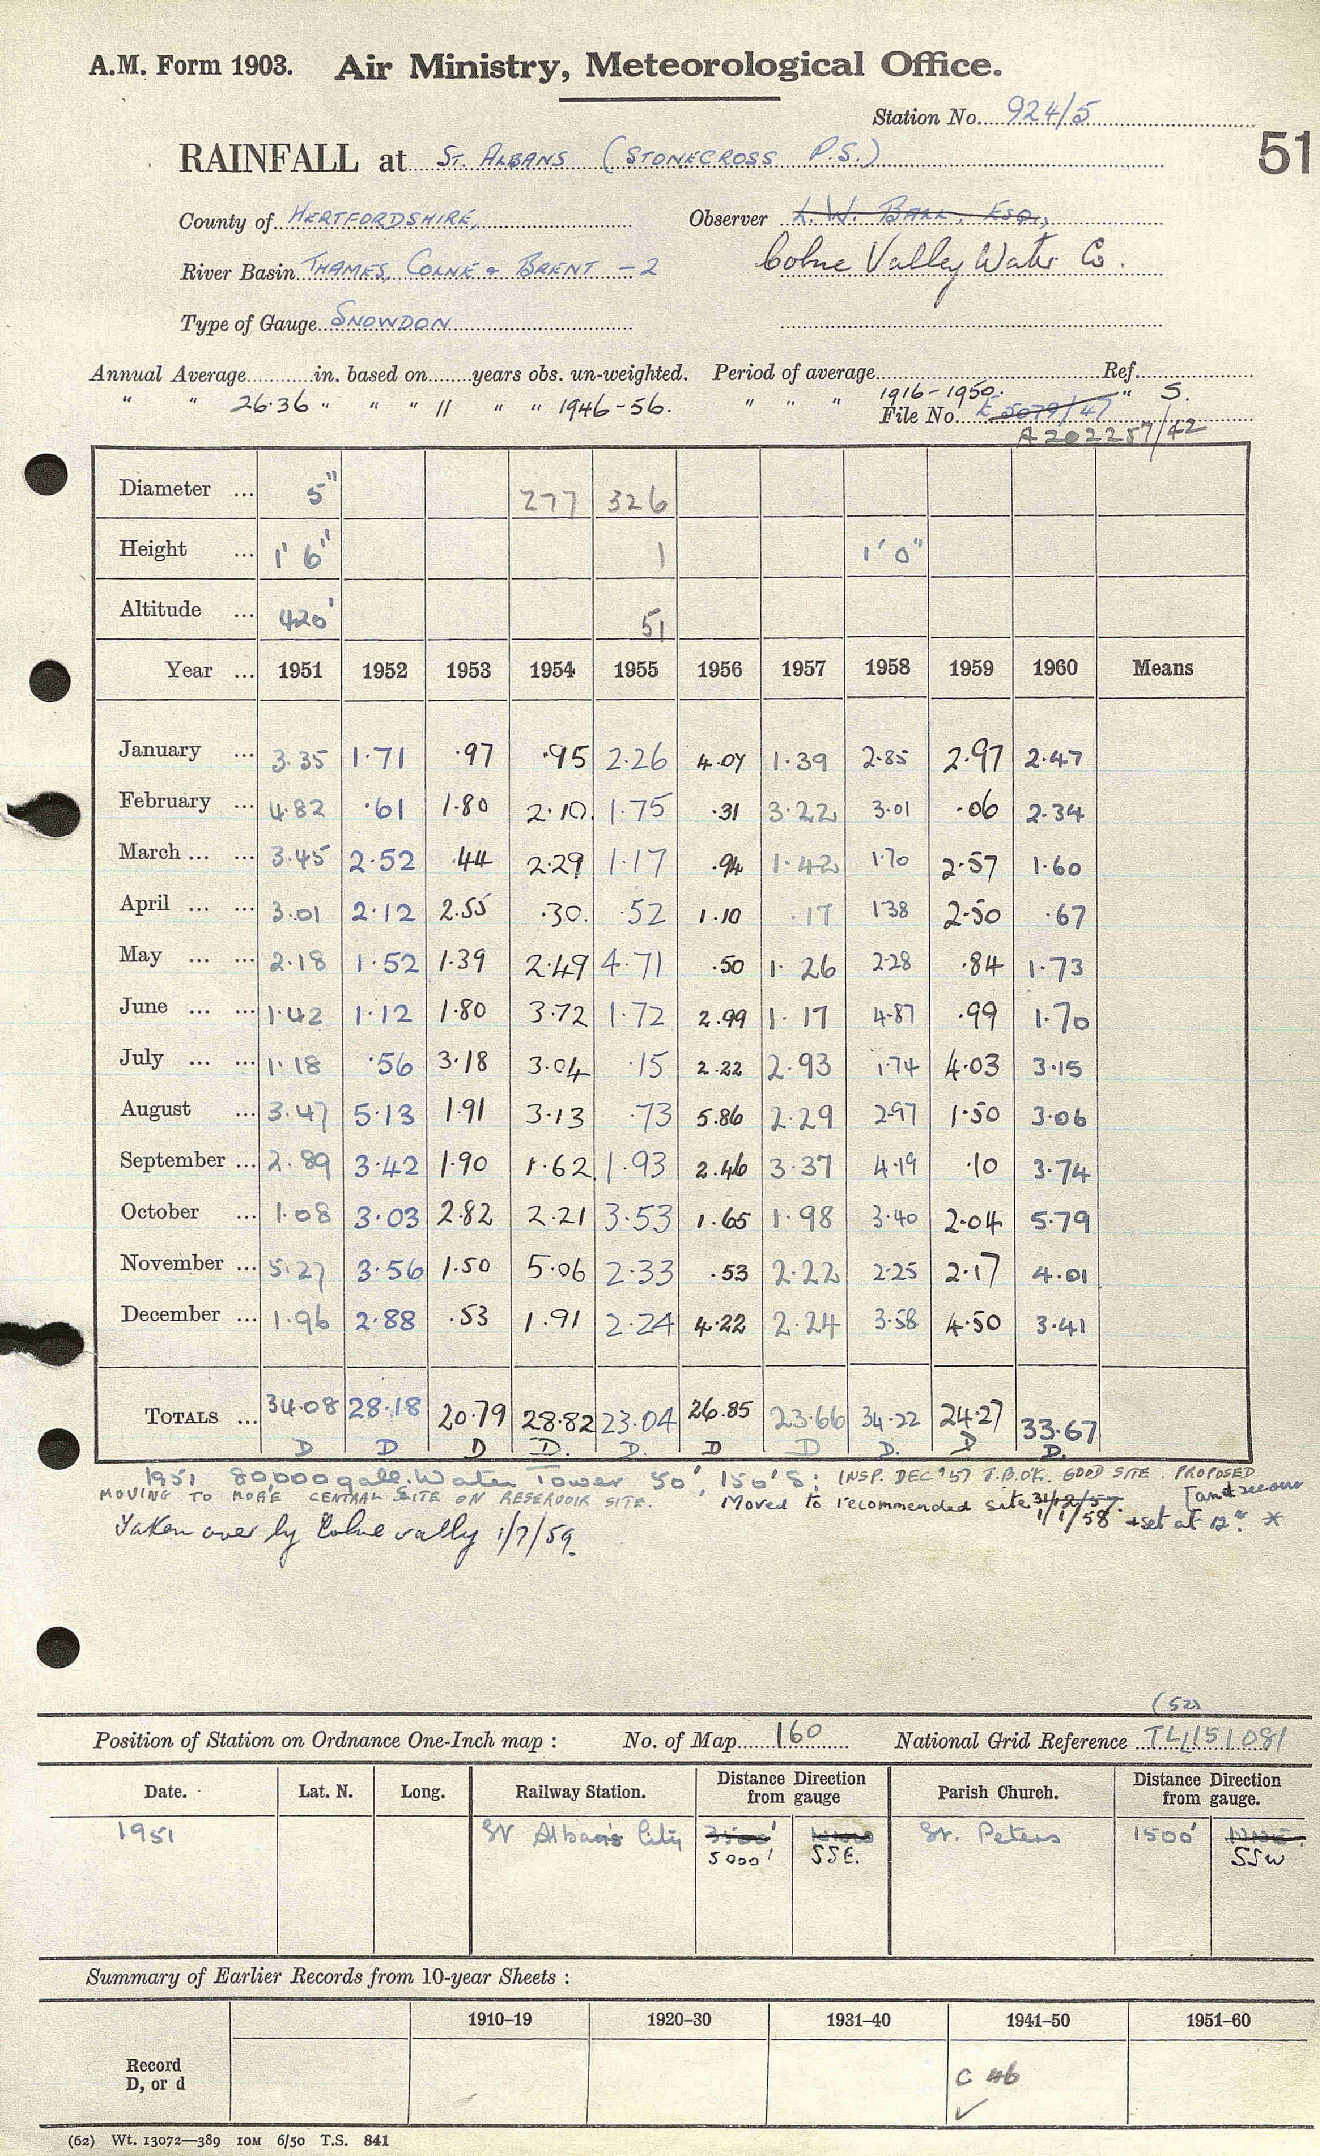 A.M. Form 1903. Air Ministry, Meteorological Office.
Station No. 924/5
51
RAINFALL at ST. ALBANS (STONECROSS P.S.)
County of HERTFORDSHIRE, Observer L. W. BALL. ESQ.,
River Basin THAMES, COLNE & BRENT - 2 Colne Valley Water Co.
Type of Gauge SNOWDON
Annual Average in. based on years obs. un-weighted. Period of average Ref.
" " 26.36 " " " 11 " " 1946-56. " " " 1916-1950. " S.
File No. A202257/42
Diameter ... 5" 277 326
Height ... 1' 6" 1 1' 0"
Altitude ... 420' 51
Year ... 1951 1952 1953 1954 1955 1956 1957 1958 1959 1960 Means
January ... 3.35 1.71 .97 .95 2.26 4.07 1.39 2.85 2.97 2.47
February ... 4.82 .61 1.80 2.10. 1.75 .31 3.22 3.01 .06 2.34
March ... ... 3.45 2.52 .44 2.29 1.17 .94 1.42 1.70 2.57 1.60
April ... ... 3.01 2.12 2.55 .30. .52 1.10 .17 1.38 2.50 .67
May ... ... 2.18 1.52 1.39 2.49 4.71 .50 1.26 2.28 .84 1.73
June ... ... 1.42 1.12 1.80 3.72 1.72 2.99 1.17 4.87 .99 1.70
July ... ... 1.18 .56 3.18 3.04 .15 2.22 2.93 1.74 4.03 3.15
August ... 3.47 5.13 1.91 3.13 .73 5.86 2.29 2.97 1.50 3.06
September ... 2.89 3.42 1.90 1.62 1.93 2.46 3.37 4.19 .10 3.74
October ... 1.08 3.03 2.82 2.21 3.53 1.65 1.98 3.40 2.04 5.79
November ... 5.27 3.56 1.50 5.06 2.33 .53 2.22 2.25 2.17 4.01
December ... 1.96 2.88 .53 1.91 2.24 4.22 2.24 3.58 4.50 3.41
TOTALS ... 34.08 28.18 20.79 28.82 23.04 26.85 23.66 34.22 24.27 33.67
D D D D. D. D D D. D D.
1951 80,000 gall. Water Tower 50', 150' S: INSP. DEC '57 T.B.OK. GOOD SITE. PROPOSED
MOVING TO MORE CENTRAL SITE ON RESERVOIR SITE. Moved to recommended site 31/12/57. 1/1/58 + set at 12". *
Taken over by Colne vally 1/7/59.
(52)
Position of Station on Ordnance One-Inch map : No. of Map 160 National Grid Reference TL151081
Date. Lat. N. Long. Railway Station. Distance Direction from gauge Parish Church. Distance Direction from gauge.
1951 St Albans City 3500' St. Peters 1500'
5000' SSE. SSW
Summary of Earlier Records from 10-year Sheets :
1910-19 1920-30 1931-40 1941-50 1951-60
Record
D, or d
C 46
✓
(62) Wt. 13072—389 10M 6/50 T.S. 841